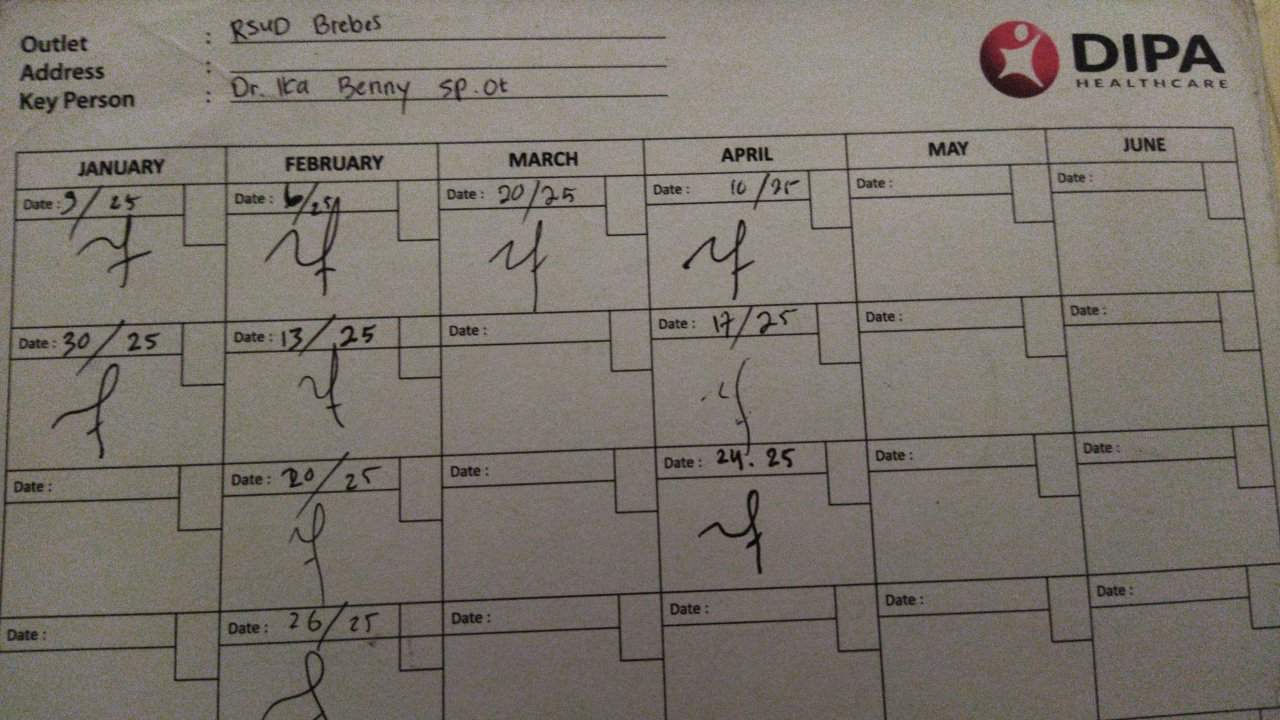 Outlet : RSUD Brebes
Address :
Key Person : Dr. Ika Benny sp.ot
DIPA
HEALTHCARE
JANUARY FEBRUARY MARCH APRIL MAY JUNE
Date : 9/25 Date : 6/25 Date : 20/25 Date : 10/25 Date : Date :
Date : 30/25 Date : 13/25 Date : Date : 17/25 Date : Date :
Date : Date : 20/25 Date : Date : 24.25 Date : Date :
Date : Date : 26/25 Date : Date : Date : Date :